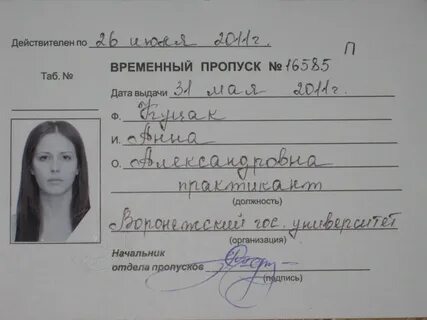 Действителен по 26 июля 2011г.
П
Таб. № ВРЕМЕННЫЙ ПРОПУСК № 16585
Дата выдачи 31 мая 2011г.
Ф. Куцак
И. Анна
О. Александровна
практикант
(должность)
Воронежский гос. университет
(организация)
Начальник
отдела пропусков
(подпись)